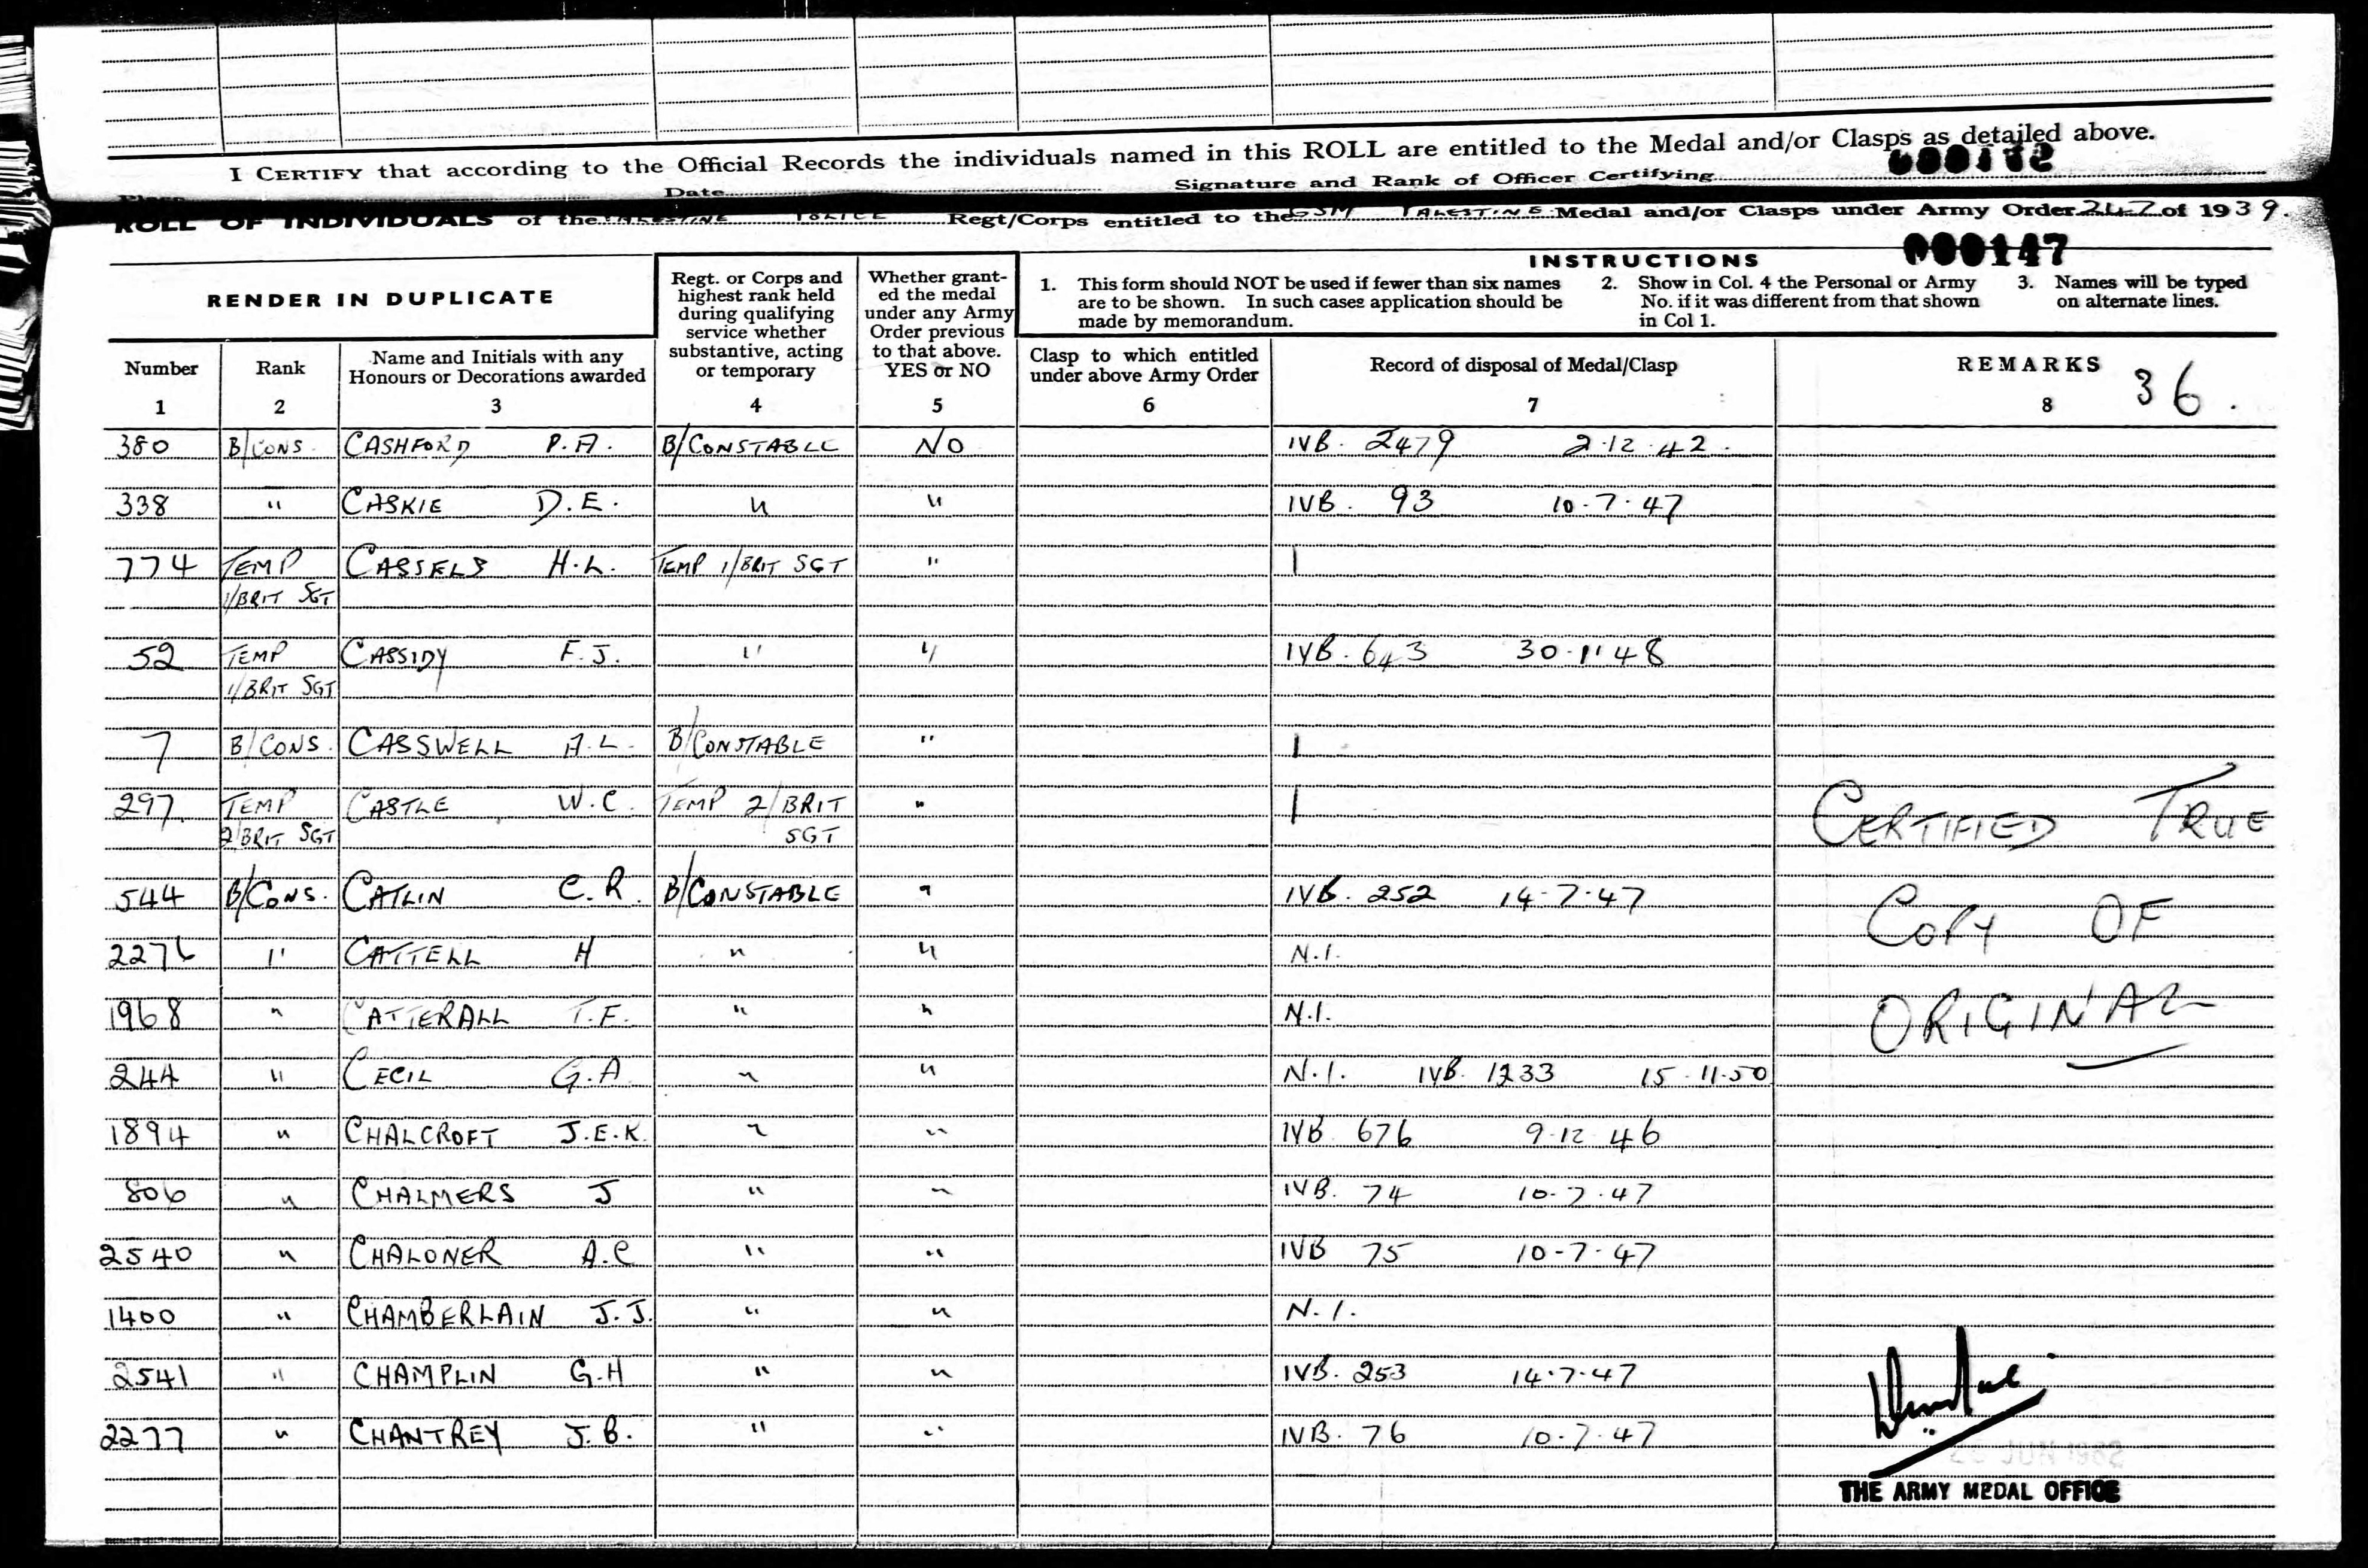 I CERTIFY that according to the Official Records the individuals named in this ROLL are entitled to the Medal and/or Clasps as detailed above.
Date Signature and Rank of Officer Certifying
ROLL OF INDIVIDUALS of the PALESTINE POLICE Regt/Corps entitled to the GSM PALESTINE Medal and/or Clasps under Army Order 247 of 1939.
000147
RENDER IN DUPLICATE
Regt. or Corps and highest rank held during qualifying service whether substantive, acting or temporary
Whether granted the medal under any Army Order previous to that above. YES or NO
INSTRUCTIONS
1. This form should NOT be used if fewer than six names are to be shown. In such cases application should be made by memorandum.
2. Show in Col. 4 the Personal or Army No. if it was different from that shown in Col 1.
3. Names will be typed on alternate lines.
Number Rank Name and Initials with any Honours or Decorations awarded Clasp to which entitled under above Army Order Record of disposal of Medal/Clasp REMARKS 36.
1 2 3 4 5 6 7 8
380 B/CONS. CASHFORD P.A. B/CONSTABLE NO IVB. 2479 2.12.42.
338 " CASKIE D.E. " " IVB. 93 10.7.47
774 TEMP CASSELS H.L. TEMP 1/BRIT SGT " |
1/BRIT SGT
52 TEMP CASSIDY F.J. " " IVB. 643 30.1.48
1/BRIT SGT
7 B/CONS. CASSWELL A.L. B/CONSTABLE " |
297 TEMP CASTLE W.C. TEMP 2/BRIT " |
2/BRIT SGT SGT
CERTIFIED TRUE
544 B/CONS. CATLIN C.R. B/CONSTABLE " IVB. 252 14.7.47
COPY OF
2276 " CATTELL H " " N.I.
1968 " CATTERALL T.F. " " N.I.
ORIGINAL
244 " CECIL G.A. " " N.I. IVB. 1233 15.11.50
1894 " CHALCROFT J.E.K. " " IVB. 676 9.12.46
806 " CHALMERS J " " IVB. 74 10.7.47
2540 " CHALONER A.C " " IVB 75 10-7-47
1400 " CHAMBERLAIN J.J. " " N.I.
2541 " CHAMPLIN G.H " " IVB. 253 14.7.47
2277 " CHANTREY J.B. " " IVB. 76 10.7.47
THE ARMY MEDAL OFFICE